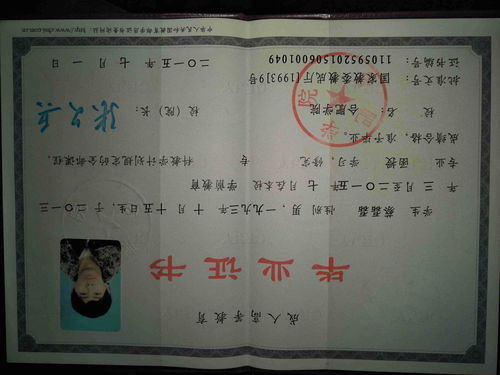 成人高等教育
毕业证书
学生 蔡磊磊 性别 男，一九九三年 十 月 十五 日生，于 二〇一三
年 三 月至二〇一五年 七 月在本校 学前教育
专业 函授 学习，修完 专 科教学计划规定的全部课程，
成绩合格，准予毕业。
校 名： 合肥学院 校（院）长：
批准文号：国家教委教成厅[1993]9号
证书编号：110595201506001049 二〇一五年 七 月 一 日
中华人民共和国教育部学历证书查询网址：http://www.chsi.com.cn